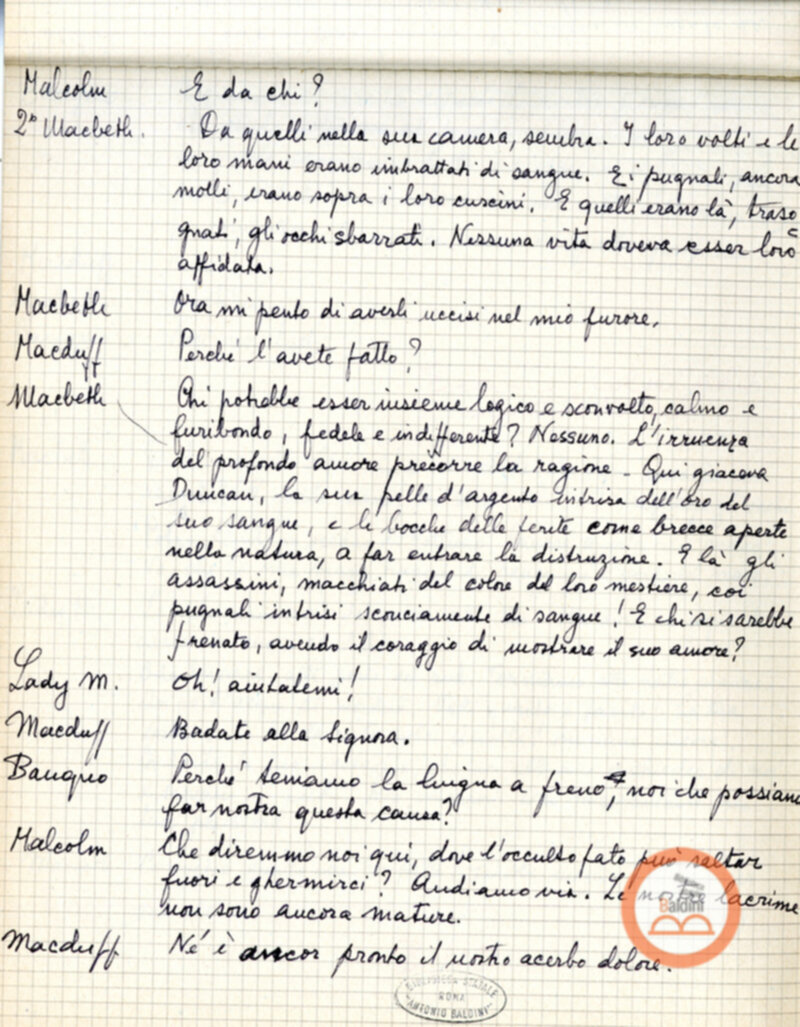 Malcolm E da chi?
2° Macbeth. Da quelli nella sua camera, sembra. I loro volti e le
loro mani erano imbrattati di sangue. E i pugnali, ancora
molli, erano sopra i loro cuscini. E quelli erano là, traso
gnati, gli occhi sbarrati. Nessuna vita doveva esser loro
affidata.
Macbeth Ora mi pento di averli uccisi nel mio furore.
Macduff Perché l'avete fatto?
Macbeth Chi potrebbe esser insieme logico e sconvolto, calmo e
furibondo, fedele e indifferente? Nessuno. L'irruenza
del profondo amore precorre la ragione - Qui giaceva
Duncan, la sua pelle d'argento intrisa dell'oro del
suo sangue, e le bocche delle ferite come brecce aperte
nella natura, a far entrare la distruzione. E là gli
assassini, macchiati del colore del loro mestiere, coi
pugnali intrisi sconciamente di sangue! E chi si sarebbe
frenato, avendo il coraggio di mostrare il suo amore?
Lady M. Oh! aiutatemi!
Macduff Badate alla Signora.
Banquo Perché teniamo la lingua a freno, noi che possiamo
far nostra questa causa?
Malcolm Che diremmo noi qui, dove l'occulto fato può saltar
fuori e ghermirci? Andiamo via. Le nostre lacrime
non sono ancora mature.
Macduff Né è ancor pronto il nostro acerbo dolore.
Baldini
BIBLIOTECA STATALE
ROMA
"ANTONIO BALDINI"